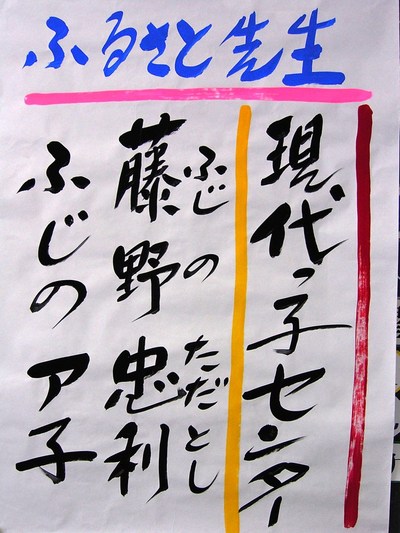 ふるさと先生
現代っ子センター
ふじの ただとし
藤野 忠利
ふじの ア子